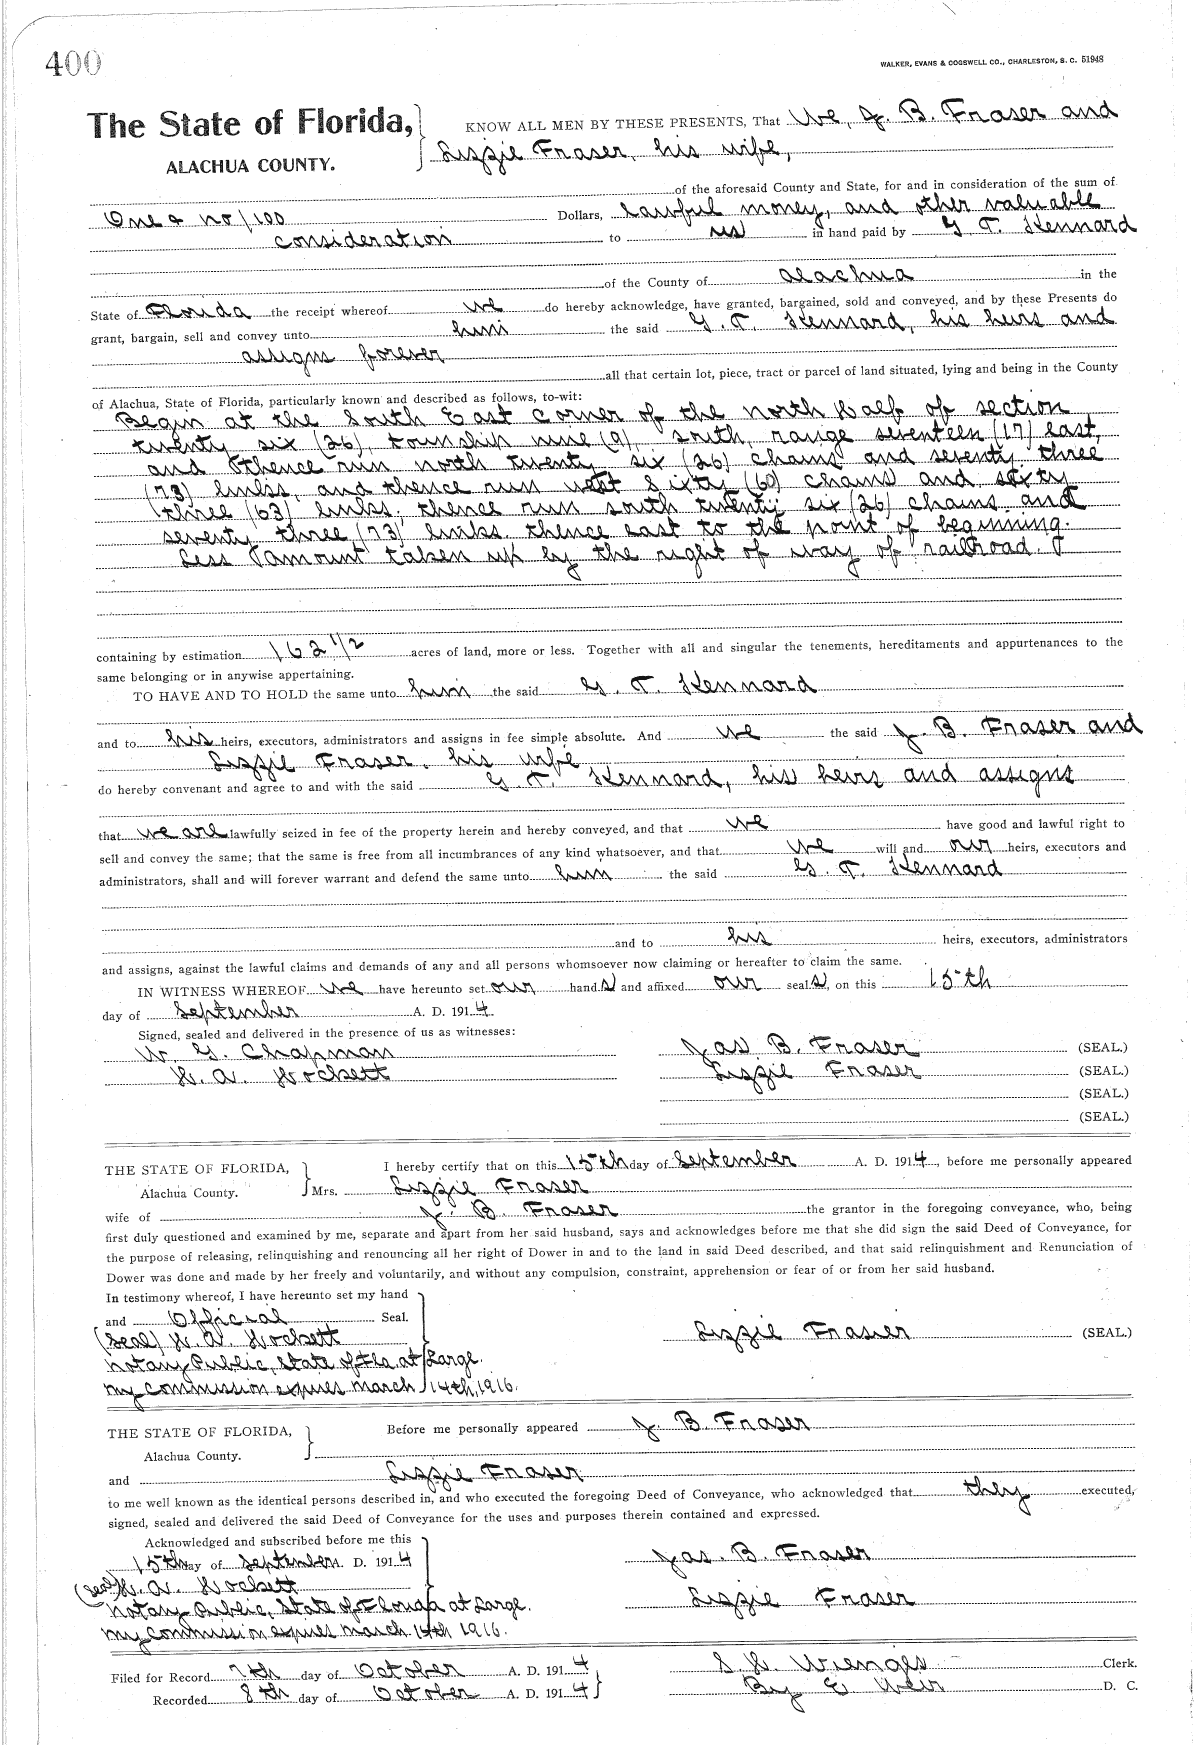 400
WALKER, EVANS & COGSWELL CO., CHARLESTON, S. C. 51948
The State of Florida,
ALACHUA COUNTY.
KNOW ALL MEN BY THESE PRESENTS, That We, J. B. Fraser and
Lizzie Fraser, his wife,
of the aforesaid County and State, for and in consideration of the sum of
One & no/100 Dollars, Lawful money, and other valuable
consideration to us in hand paid by G. T. Kennard
of the County of Alachua in the
State of Florida the receipt whereof we do hereby acknowledge, have granted, bargained, sold and conveyed, and by these Presents do
grant, bargain, sell and convey unto him the said G. T. Kennard, his heirs and
assigns forever
all that certain lot, piece, tract or parcel of land situated, lying and being in the County
of Alachua, State of Florida, particularly known and described as follows, to-wit:
Begin at the South East corner of the north half of section
twenty six (26), township nine (9), south, range seventeen (17) east,
and thence run north twenty six (26) chains and seventy three
(73) links, and thence run west Sixty (60) chains and sixty
three (63) links, thence run south twenty six (26) chains and
seventy three (73) links. thence east to the point of beginning.
Less amount taken up by the right of way of railroad.
containing by estimation 162 1/2 acres of land, more or less. Together with all and singular the tenements, hereditaments and appurtenances to the
same belonging or in anywise appertaining.
TO HAVE AND TO HOLD the same unto him the said G. T. Kennard
and to his heirs, executors, administrators and assigns in fee simple absolute. And we the said J. B. Fraser and
Lizzie Fraser, his wife
do hereby convenant and agree to and with the said G. T. Kennard, his heirs and assigns
that we are lawfully seized in fee of the property herein and hereby conveyed, and that we have good and lawful right to
sell and convey the same; that the same is free from all incumbrances of any kind whatsoever, and that we will and our heirs, executors and
administrators, shall and will forever warrant and defend the same unto him the said G. T. Kennard
and to his heirs, executors, administrators
and assigns, against the lawful claims and demands of any and all persons whomsoever now claiming or hereafter to claim the same.
IN WITNESS WHEREOF we have hereunto set our hands and affixed our seals, on this 15th
day of September A. D. 1914.
Signed, sealed and delivered in the presence of us as witnesses:
W. G. Chapman Jas B. Fraser (SEAL.)
Lizzie Fraser (SEAL.)
(SEAL.)
(SEAL.)
THE STATE OF FLORIDA, I hereby certify that on this 15th day of September A. D. 1914, before me personally appeared
Alachua County. Mrs. Lizzie Fraser
wife of J. B. Fraser the grantor in the foregoing conveyance, who, being
first duly questioned and examined by me, separate and apart from her said husband, says and acknowledges before me that she did sign the said Deed of Conveyance, for
the purpose of releasing, relinquishing and renouncing all her right of Dower in and to the land in said Deed described, and that said relinquishment and Renunciation of
Dower was done and made by her freely and voluntarily, and without any compulsion, constraint, apprehension or fear of or from her said husband.
In testimony whereof, I have hereunto set my hand
and Official Seal.
Lizzie Fraser (SEAL.)
(Seal)
Notary Public, State of Fla at Large.
my commission expires march 14th, 1916.
THE STATE OF FLORIDA, Before me personally appeared J. B. Fraser
Alachua County.
and Lizzie Fraser
to me well known as the identical persons described in, and who executed the foregoing Deed of Conveyance, who acknowledged that they executed,
signed, sealed and delivered the said Deed of Conveyance for the uses and purposes therein contained and expressed.
Acknowledged and subscribed before me this
15th day of September A. D. 1914 Jas. B. Fraser
(seal)
Lizzie Fraser
Notary Public, State of Florida at Large.
my commission expires march 14th 1916.
Filed for Record 7th day of October A. D. 1914 Clerk.
Recorded 8th day of October A. D. 1914 By E Weir D. C.